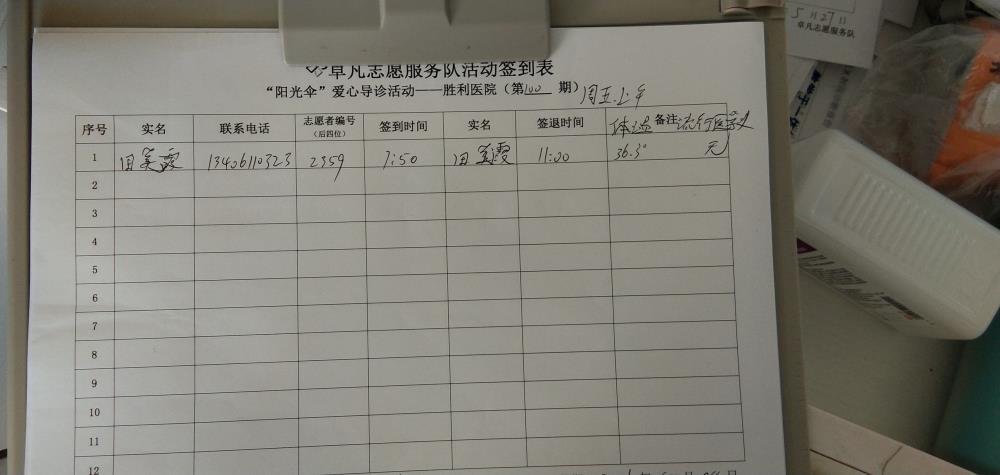 5月27日
卓凡志愿服务队
卓凡志愿服务队活动签到表
“阳光伞”爱心导诊活动——胜利医院（第100期）周五上午
序号 实名 联系电话 志愿者编号（后四位） 签到时间 实名 签退时间 体温 备注 流行医学史
1 田美霞 13406110323 2359 7:50 田美霞 11:00 36.3° 无
2
3
4
5
6
7
8
9
10
11
12